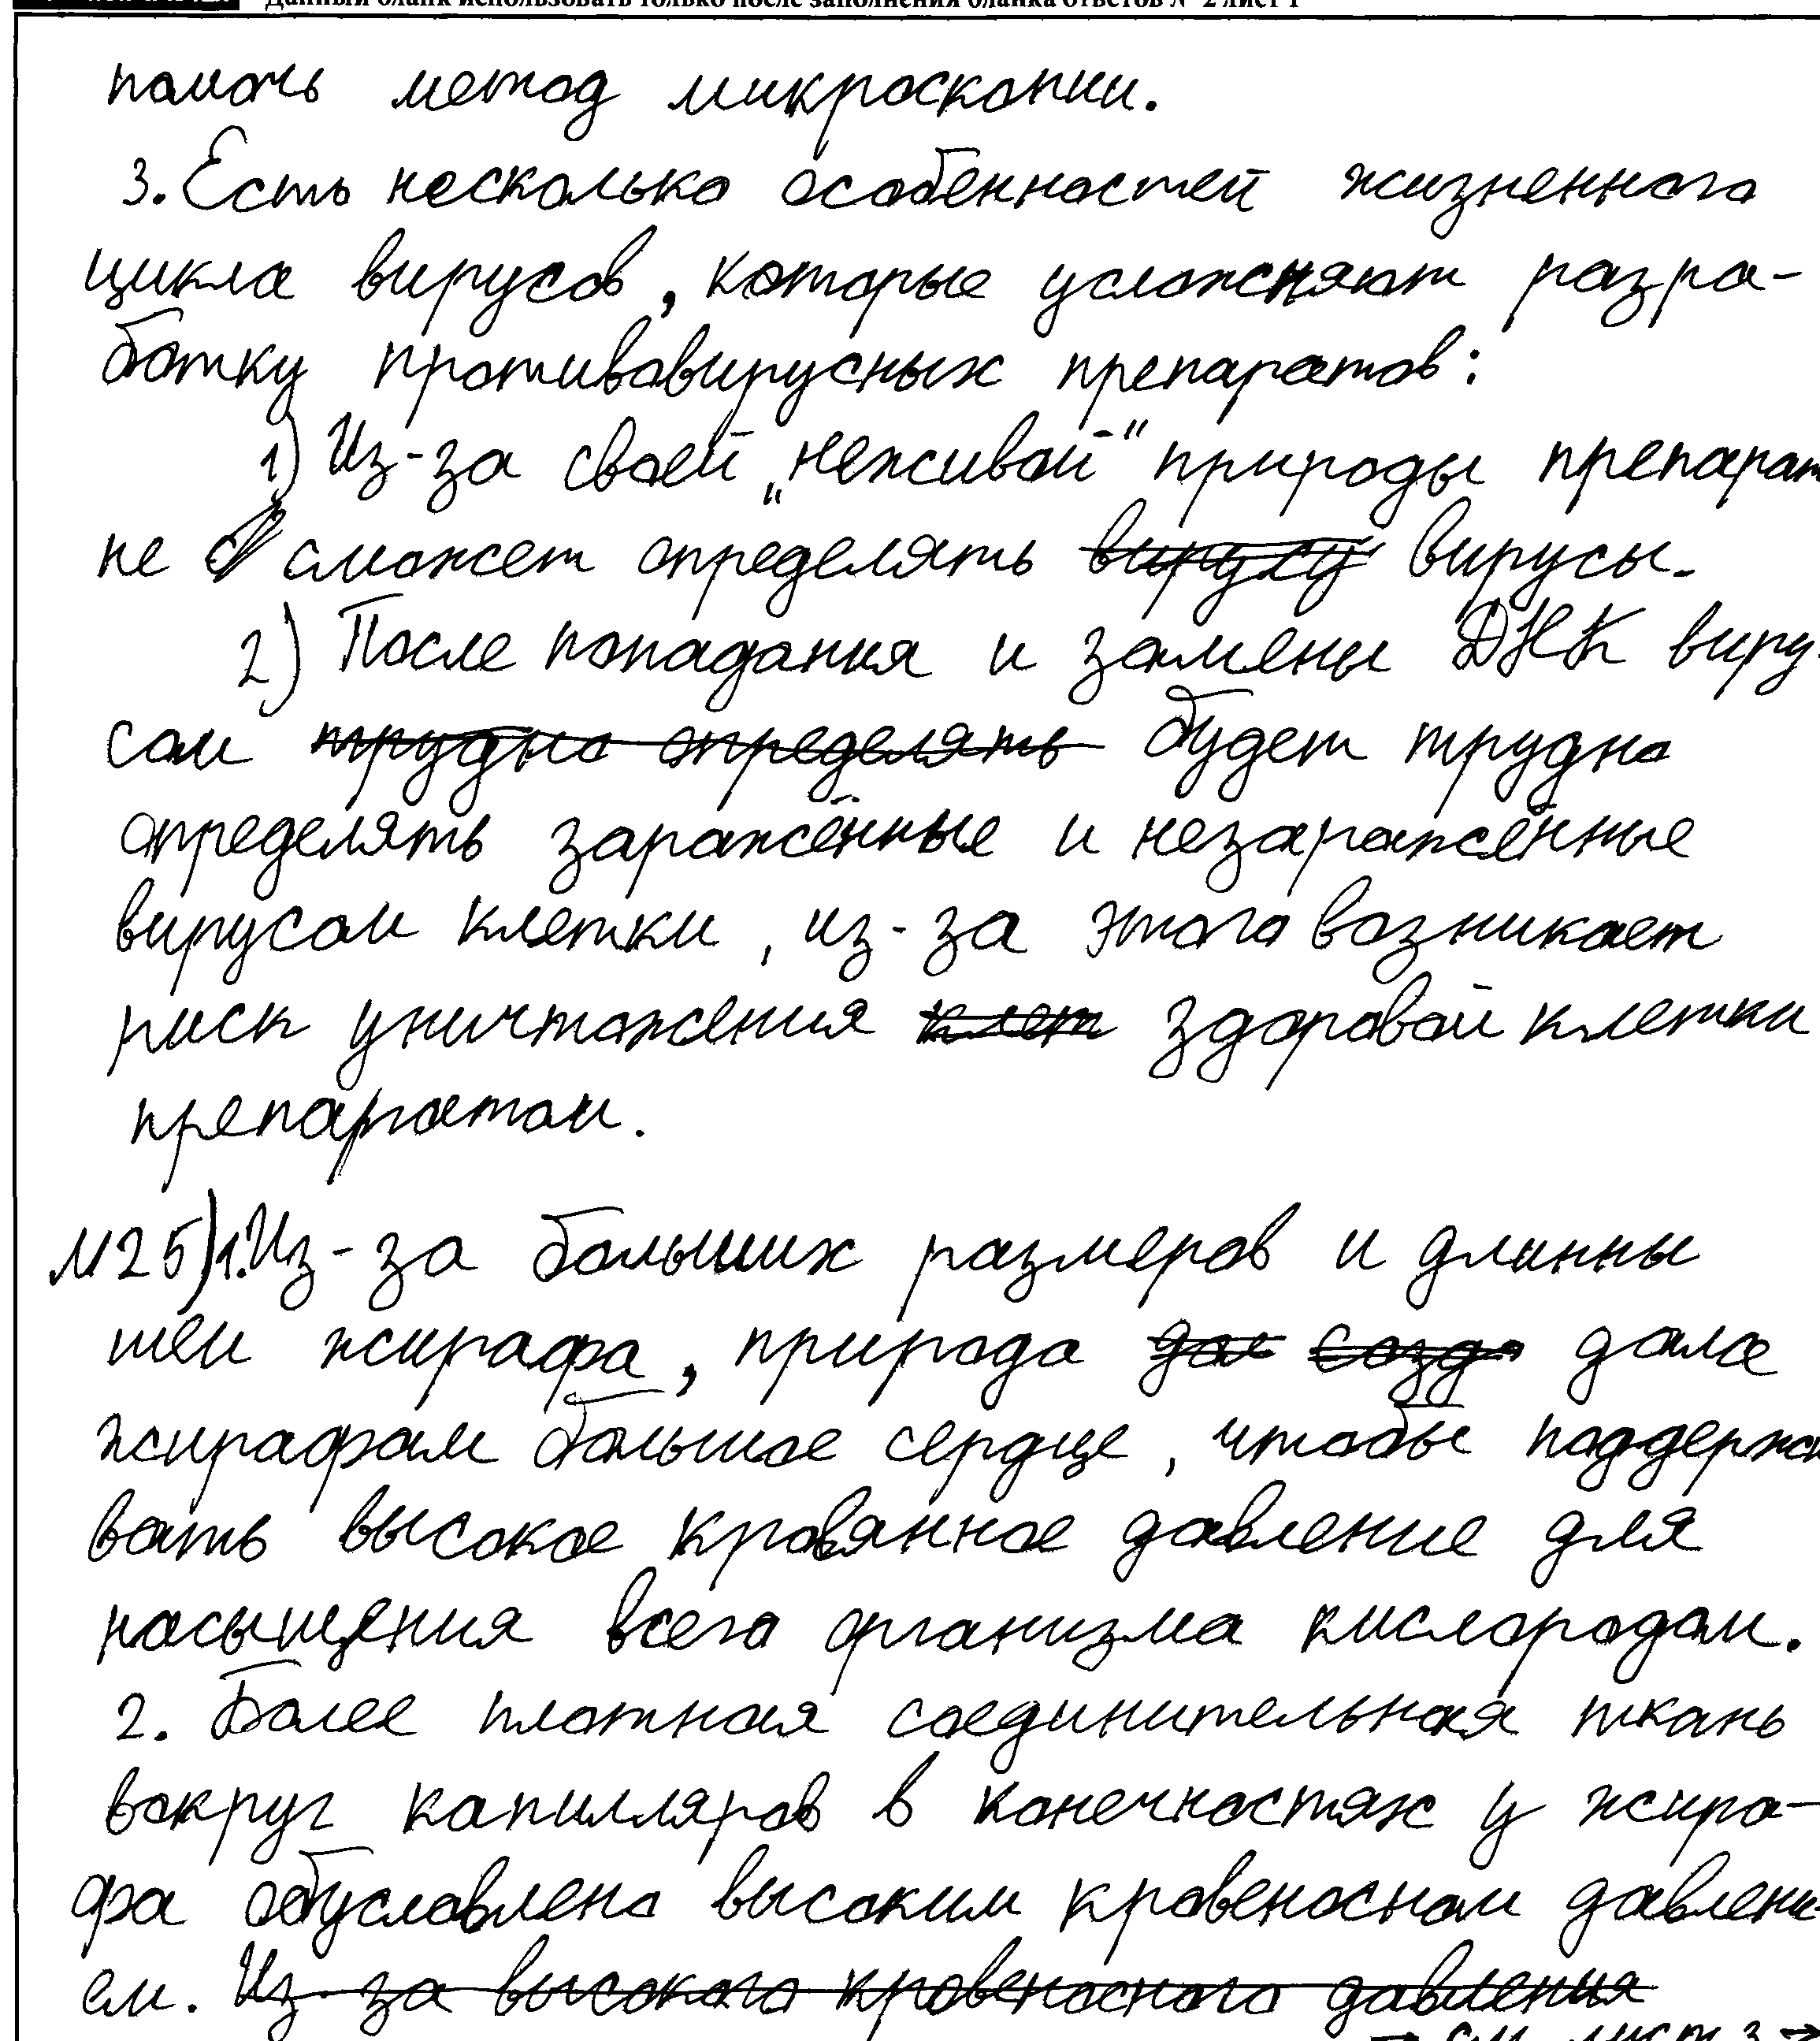 Данный бланк использовать только после заполнения бланка ответов № 2 лист 1
помочь метод микроскопии.
3. Есть несколько особенностей жизненного
цикла вирусов, которые усложняют разра-
ботку противовирусных препаратов:
1) Из-за своей „неживой“ природы препарат
не сможет определять вирусу вирусы.
2) После попадания и замены ДНК виру-
сом трудно определять будет трудно
определять заражённые и незаражённые
вирусом клетки, из-за этого возникает
риск уничтожения клет здоровой клетки
препаратом.
№25) 1. Из-за больших размеров и длинны
шеи жирафа, природа дал созда дала
жирафам большое сердце, чтобы поддержи
вать высокое кровянное давление для
насыщения всего организма кислородом.
2. Более плотная соединительная ткань
вокруг капилляров в конечностях у жира-
фа обусловлена высоким кровеносном давлени-
ем. Из-за высокого кровеносного давления
→ см. лист 3 →